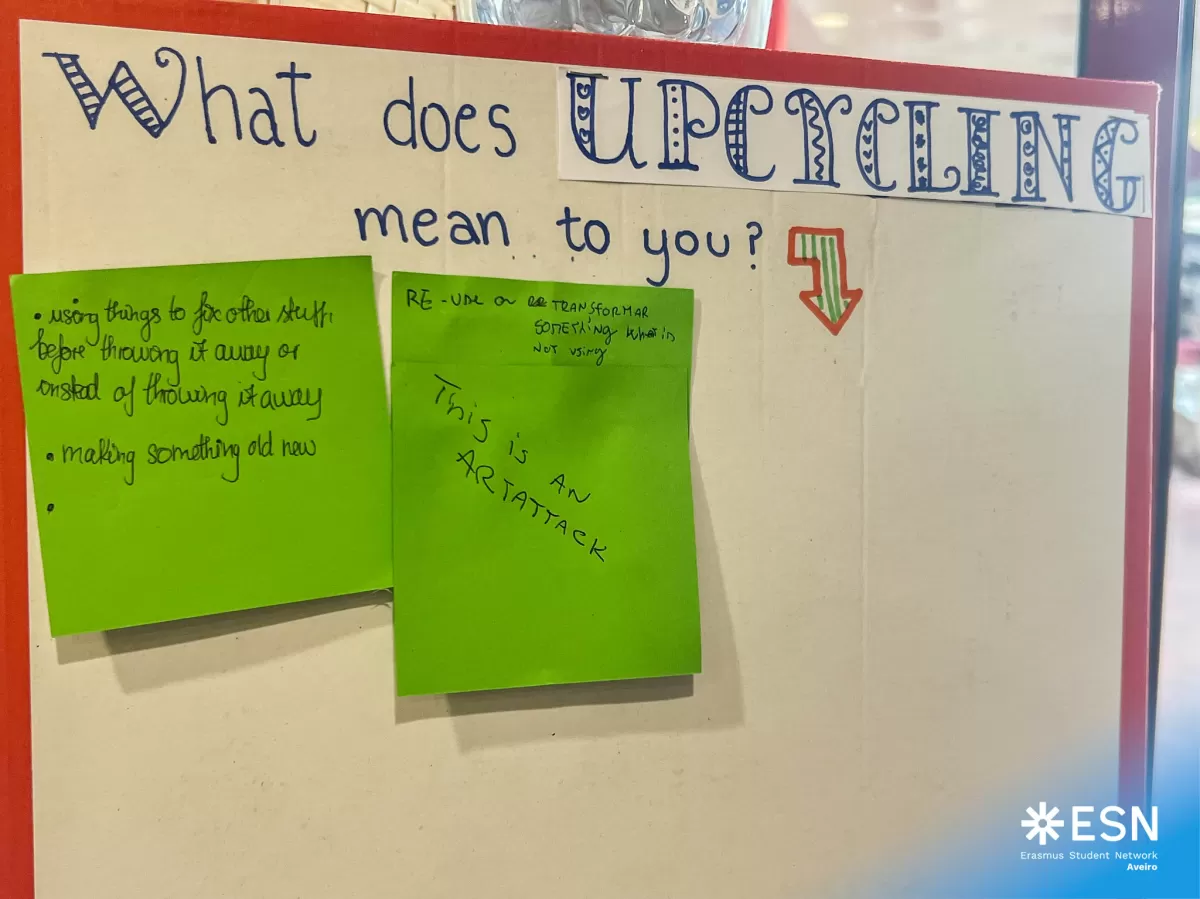 What does UPCYCLING
mean to you?
• using things to fix other stuff
before throwing it away or
instead of throwing it away
• making something old new
•
RE-USE or TRANSFORMAR
SOMETHING what is
NOT USING
This is AN
ARTATTACK
ESN
Erasmus Student Network
Aveiro